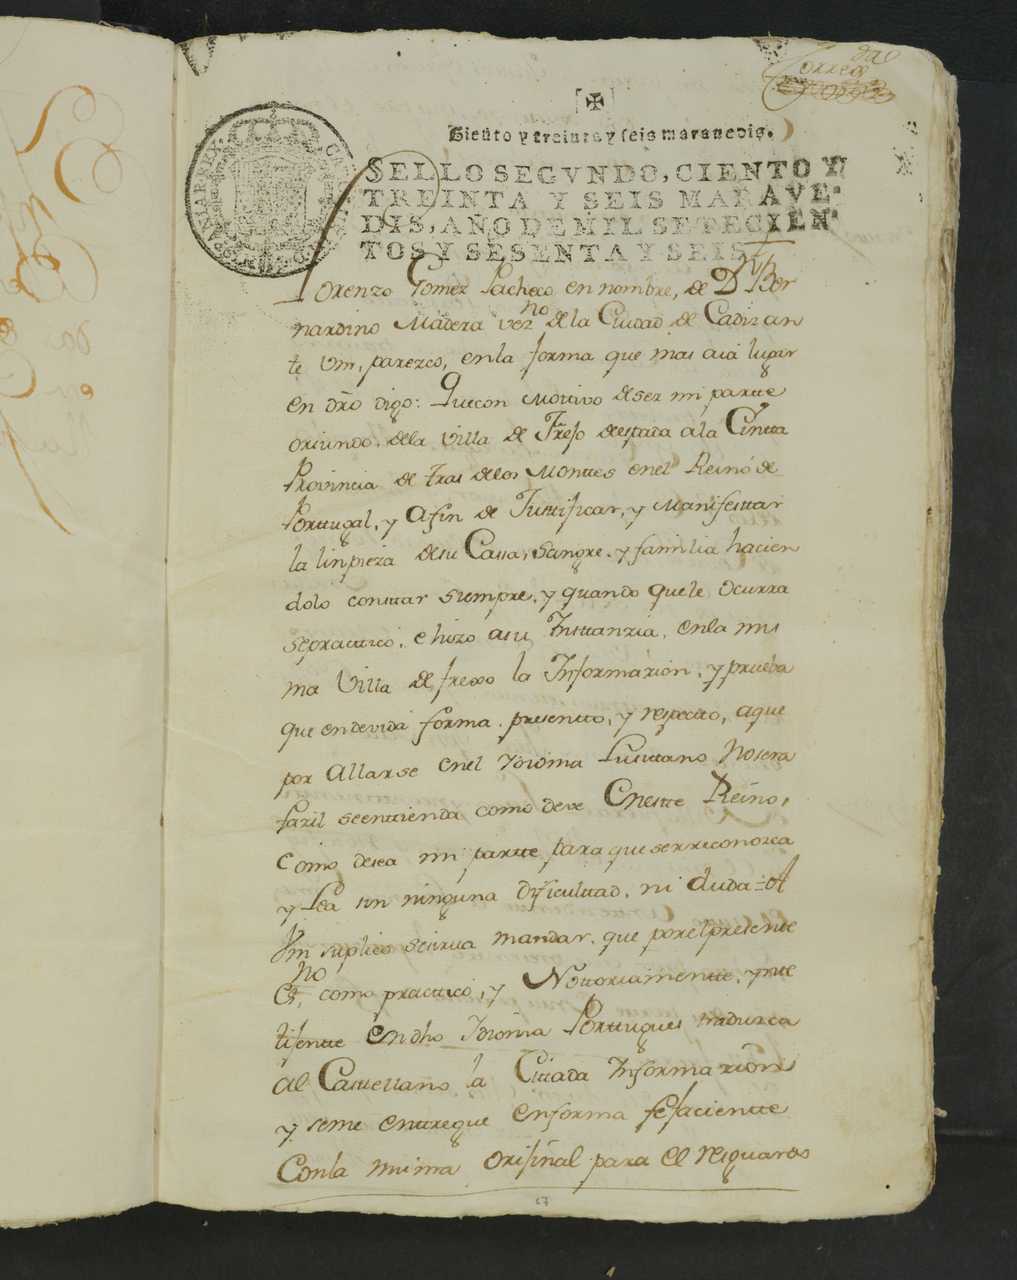 Torres
Ciento y treinta y seis maravedis.
SELLO SEGVNDO, CIENTO Y
TREINTA Y SEIS MARAVE-
DIS, AÑO DE MIL SETECIEN-
TOS Y SESENTA Y SEIS
Lorenzo Gomez Pacheco en nombre, de Dn Ber
nardino Madera vezno de la Ciudad de Cadiz an
te Vm, parezco, en la forma que mas aia lugar
en dro digo: Que con Mottivo de ser mi partte
oriundo, dela Villa de Frejo de espada a la Cintta
Provincia de tras delos Monttes en el Reino de
Porttugal, y Afin de Justtificar, y Manifesttar
la linpieza de su Cassa, Sangre, y familia hacien
dolo consttar siempre, y quando que le Ocurra
se practticó, e hizo a su Insttanzia, en la mis
ma Villa de frexo la Informazion, y prueba
que en devida forma, presentto, y respectto, a que
por Allarse en el Ydioma Lusittano No sera
fazil se enttienda como deve En estte Reino,
como desea mi partte para que se rreconozca
y Lea sin ninguna Dificulttad, ni duda = A
Vm suplico se sirva mandar, que por el presentte
Esno, como practtico, y Nottoriamentte, ynte
lijentte En dho Idioma Porttugues traduzca
Al Casttellano la Cittada Informazion
y se me enttregue en forma fefacientte
Con la misma Orijinal para el resguardo
67